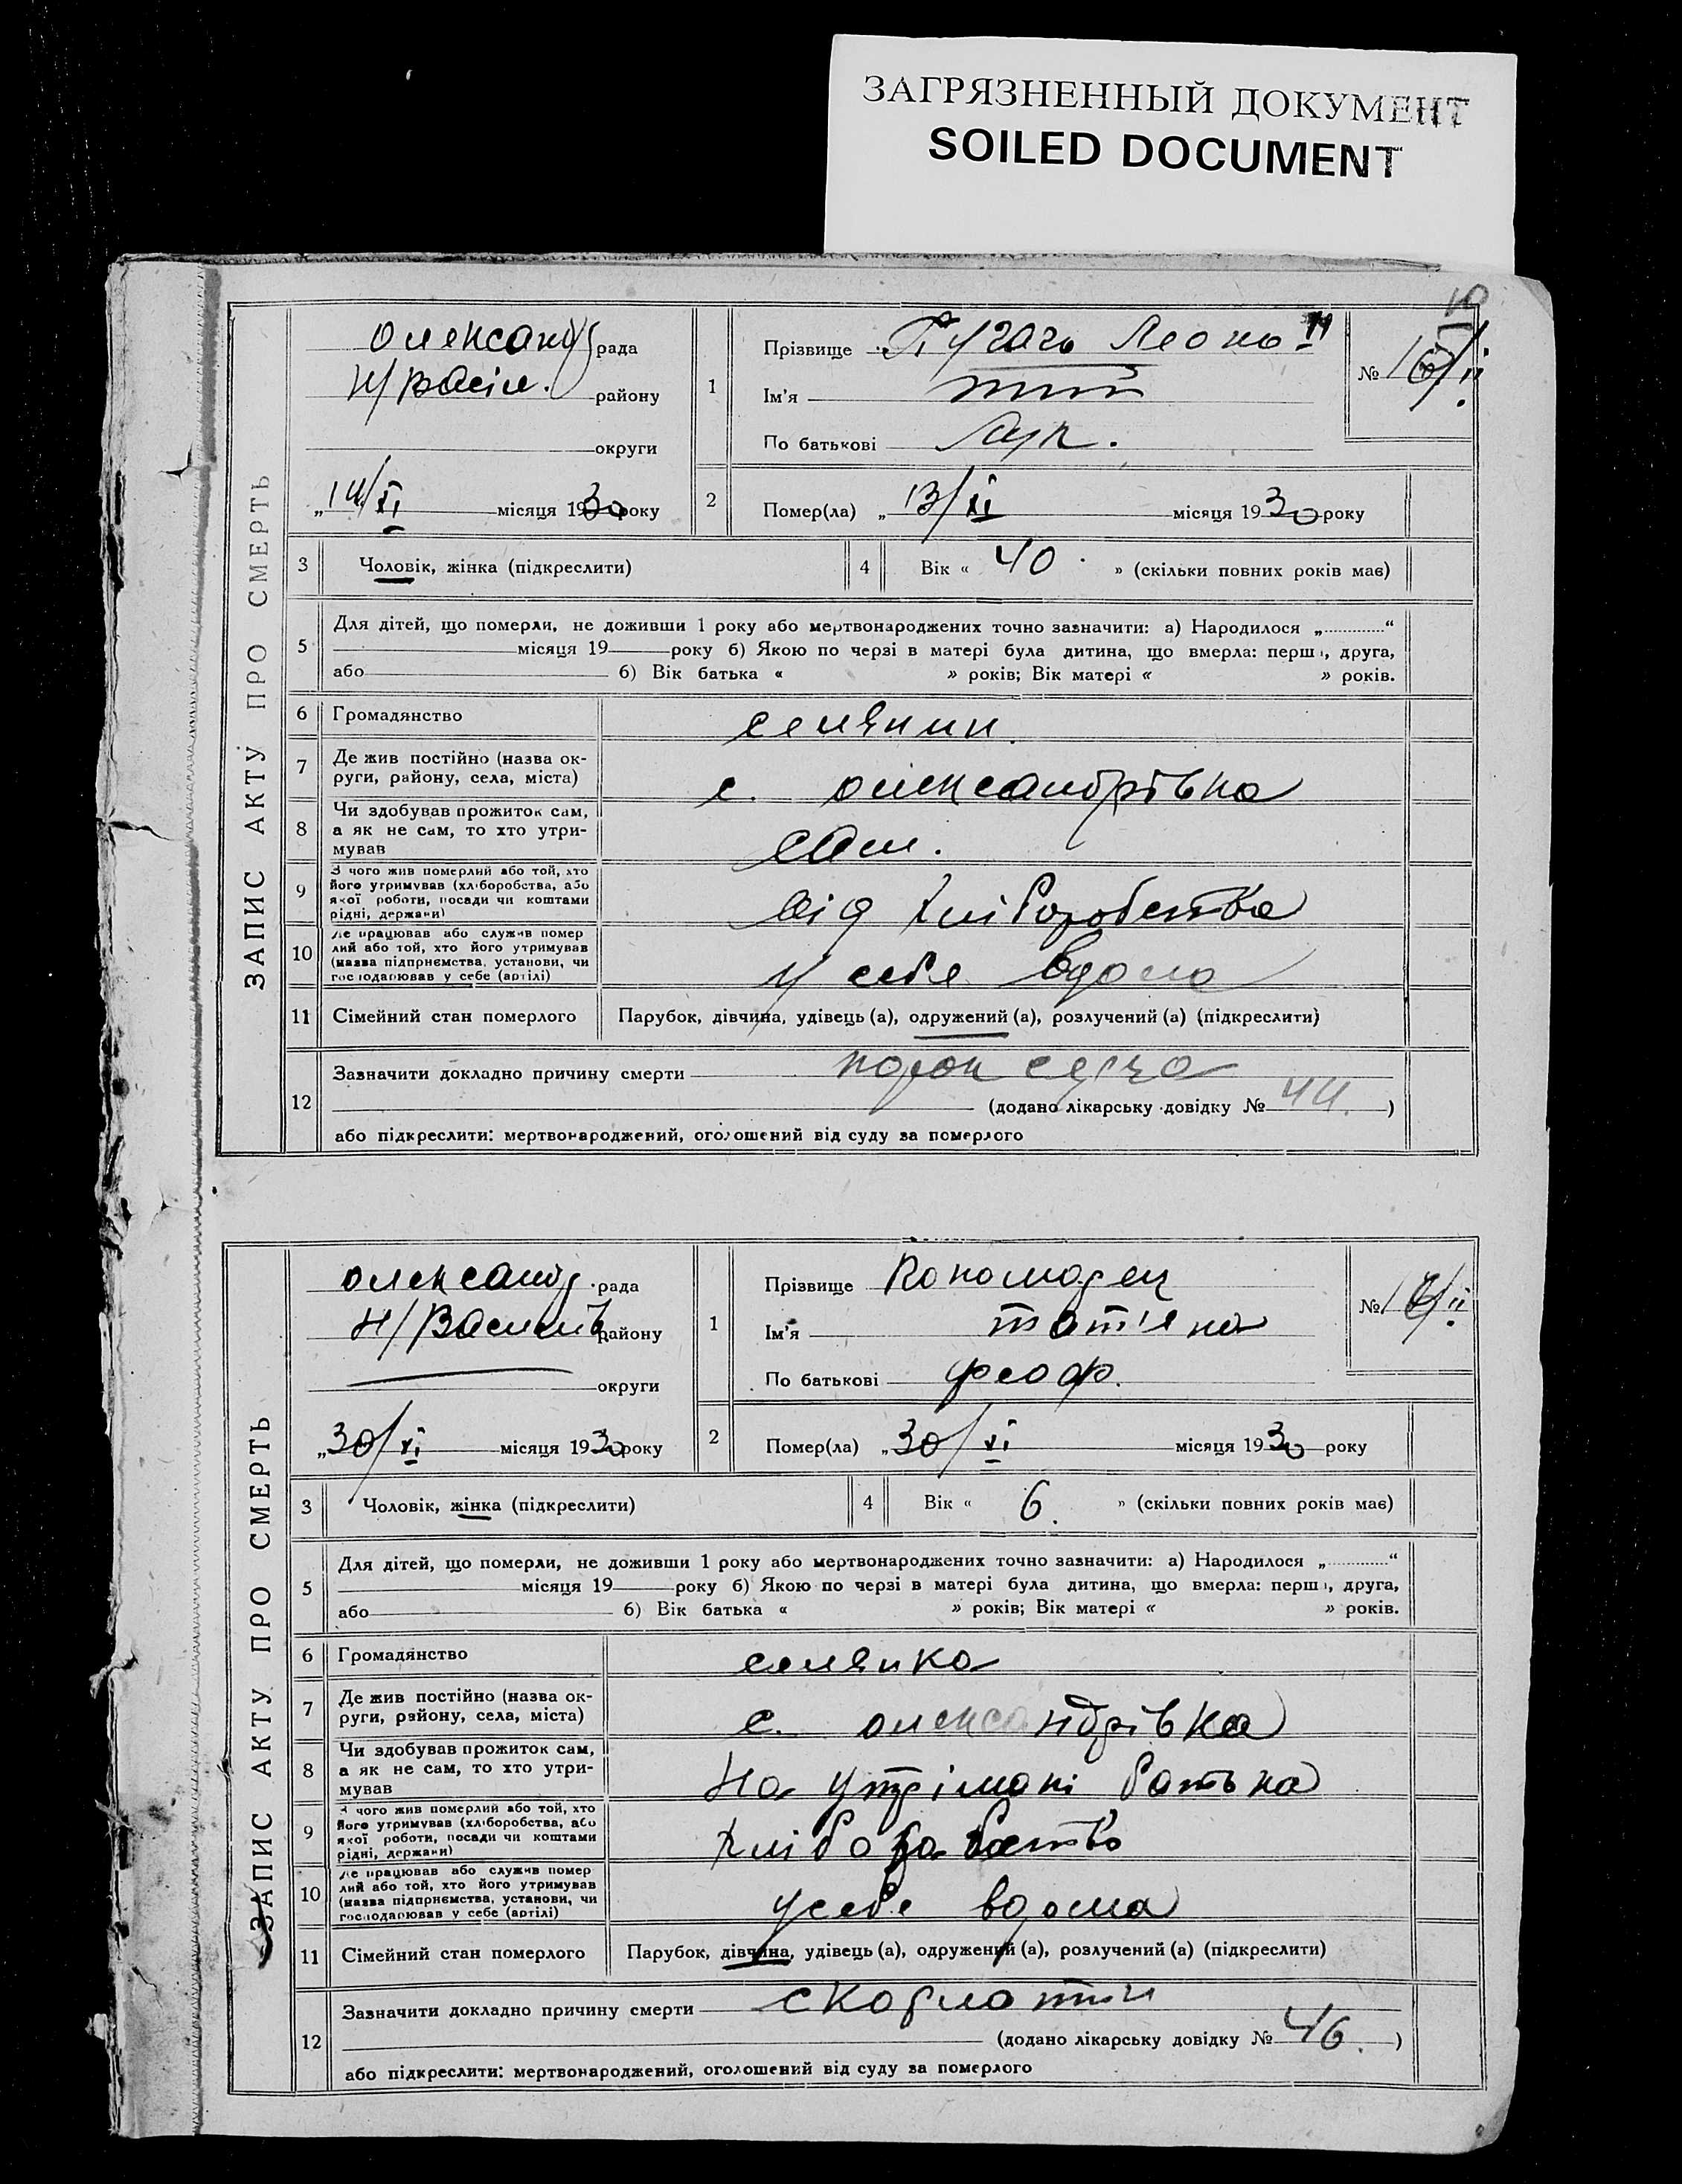 ЗАГРЯЗНЕННЫЙ ДОКУМЕНТ
SOILED DOCUMENT
ЗАПИС АКТУ ПРО СМЕРТЬ
олександр рада
Н/Васил. району
округи
„14/XI місяця 1930 року
1 Прізвище Пугачь Леонь
Ім'я тий
По батькові Лук.
№
2 Помер(ла) „13/XI місяця 1930 року
3 Чоловік, жінка (підкреслити)
4 Вік « 40 » (скільки повних років має)
5 Для дітей, що померли, не доживши 1 року або мертвонароджених точно зазначити: а) Народилося „ “
місяця 19 року б) Якою по черзі в матері була дитина, що вмерла: перша, друга,
або б) Вік батька « » років; Вік матері « » років.
6 Громадянство селянин
7 Де жив постійно (назва ок-
руги, району, села, міста) с. олександрівка
8 Чи здобував прожиток сам,
а як не сам, то хто утри-
мував сам.
9 З чого жив померлий або той, хто
його утримував (хліборобства, або
якої роботи, посади чи коштами
рідні, держави) від хліборобства
10 Де працював або служив помер
лий або той, хто його утримував
(назва підприємства, установи, чи
господарював у себе (артілі) у себе вдома
11 Сімейний стан померлого Парубок, дівчина, удівець (а), одружений (а), розлучений (а) (підкреслити)
12 Зазначити докладно причину смерти порок серца
(додано лікарську довідку № 44. )
або підкреслити: мертвонароджений, оголошений від суду за померлого
ЗАПИС АКТУ ПРО СМЕРТЬ
олександр рада
Н/Василів району
округи
„30/XI місяця 1930 року
1 Прізвище Кономарец
Ім'я тат'яна
По батькові феоф.
№
2 Помер(ла) „30/XI місяця 1930 року
3 Чоловік, жінка (підкреслити)
4 Вік « 6. » (скільки повних років має)
5 Для дітей, що померли, не доживши 1 року або мертвонароджених точно зазначити: а) Народилося „ “
місяця 19 року б) Якою по черзі в матері була дитина, що вмерла: перша, друга,
або б) Вік батька « » років; Вік матері « » років.
6 Громадянство селянка
7 Де жив постійно (назва ок-
руги, району, села, міста) с. олександрівка
8 Чи здобував прожиток сам,
а як не сам, то хто утри-
мував На утрімані батька
9 З чого жив померлий або той, хто
його утримував (хліборобства, або
якої роботи, посади чи коштами
рідні, держави)
10 Де працював або служив помер
лий або той, хто його утримував
(назва підприємства, установи, чи
господарював у себе (артілі) усебе вдома
11 Сімейний стан померлого Парубок, дівчина, удівець (а), одружений (а), розлучений (а) (підкреслити)
12 Зазначити докладно причину смерти скорлотин
(додано лікарську довідку № 46. )
або підкреслити: мертвонароджений, оголошений від суду за померлого